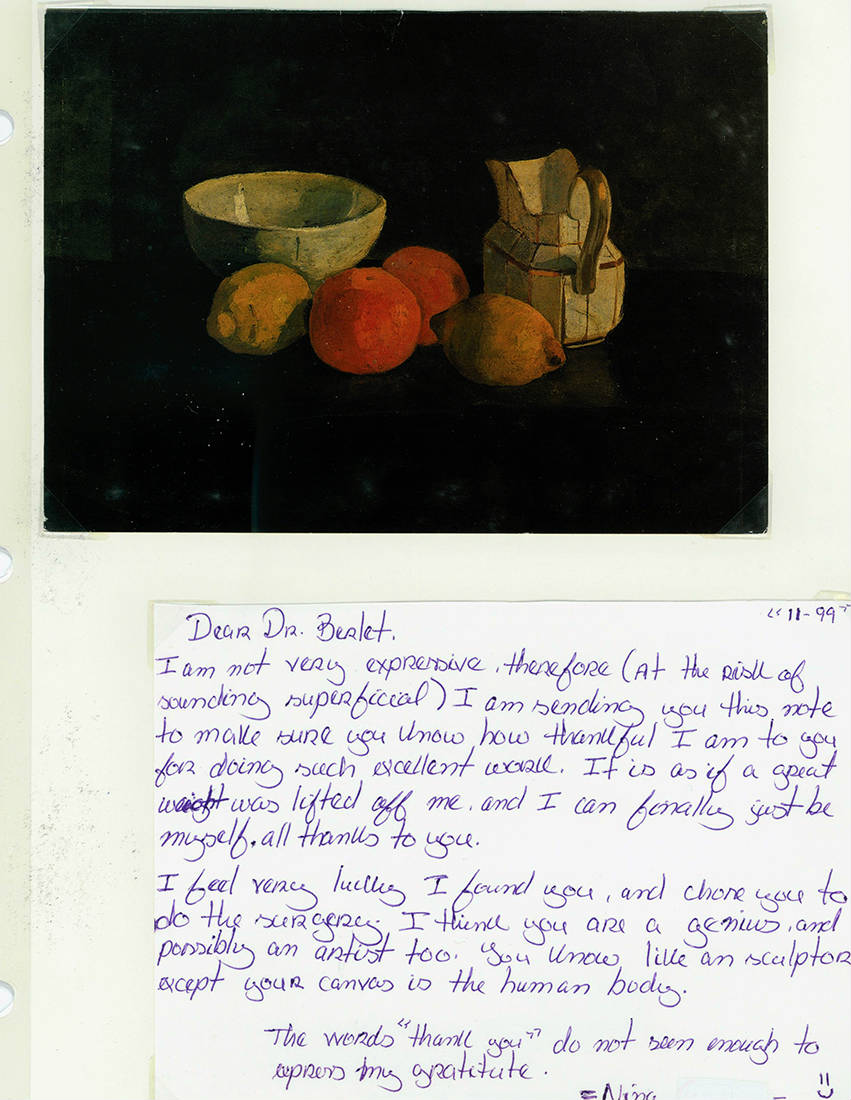 "11-99"
Dear Dr. Berlet.
I am not very expressive, therefore (at the risk of
sounding superficial) I am sending you this note
to make sure you know how thankful I am to you
for doing such excellent work. It is as if a great
weight was lifted off me, and I can finally just be
myself, all thanks to you.
I feel very lucky I found you, and chose you to
do the surgery. I think you are a genius, and
possibly an artist too. You know like an sculptor
except your canvas is the human body.
The words "thank you" do not seen enough to
express my gratitute.
=Nina